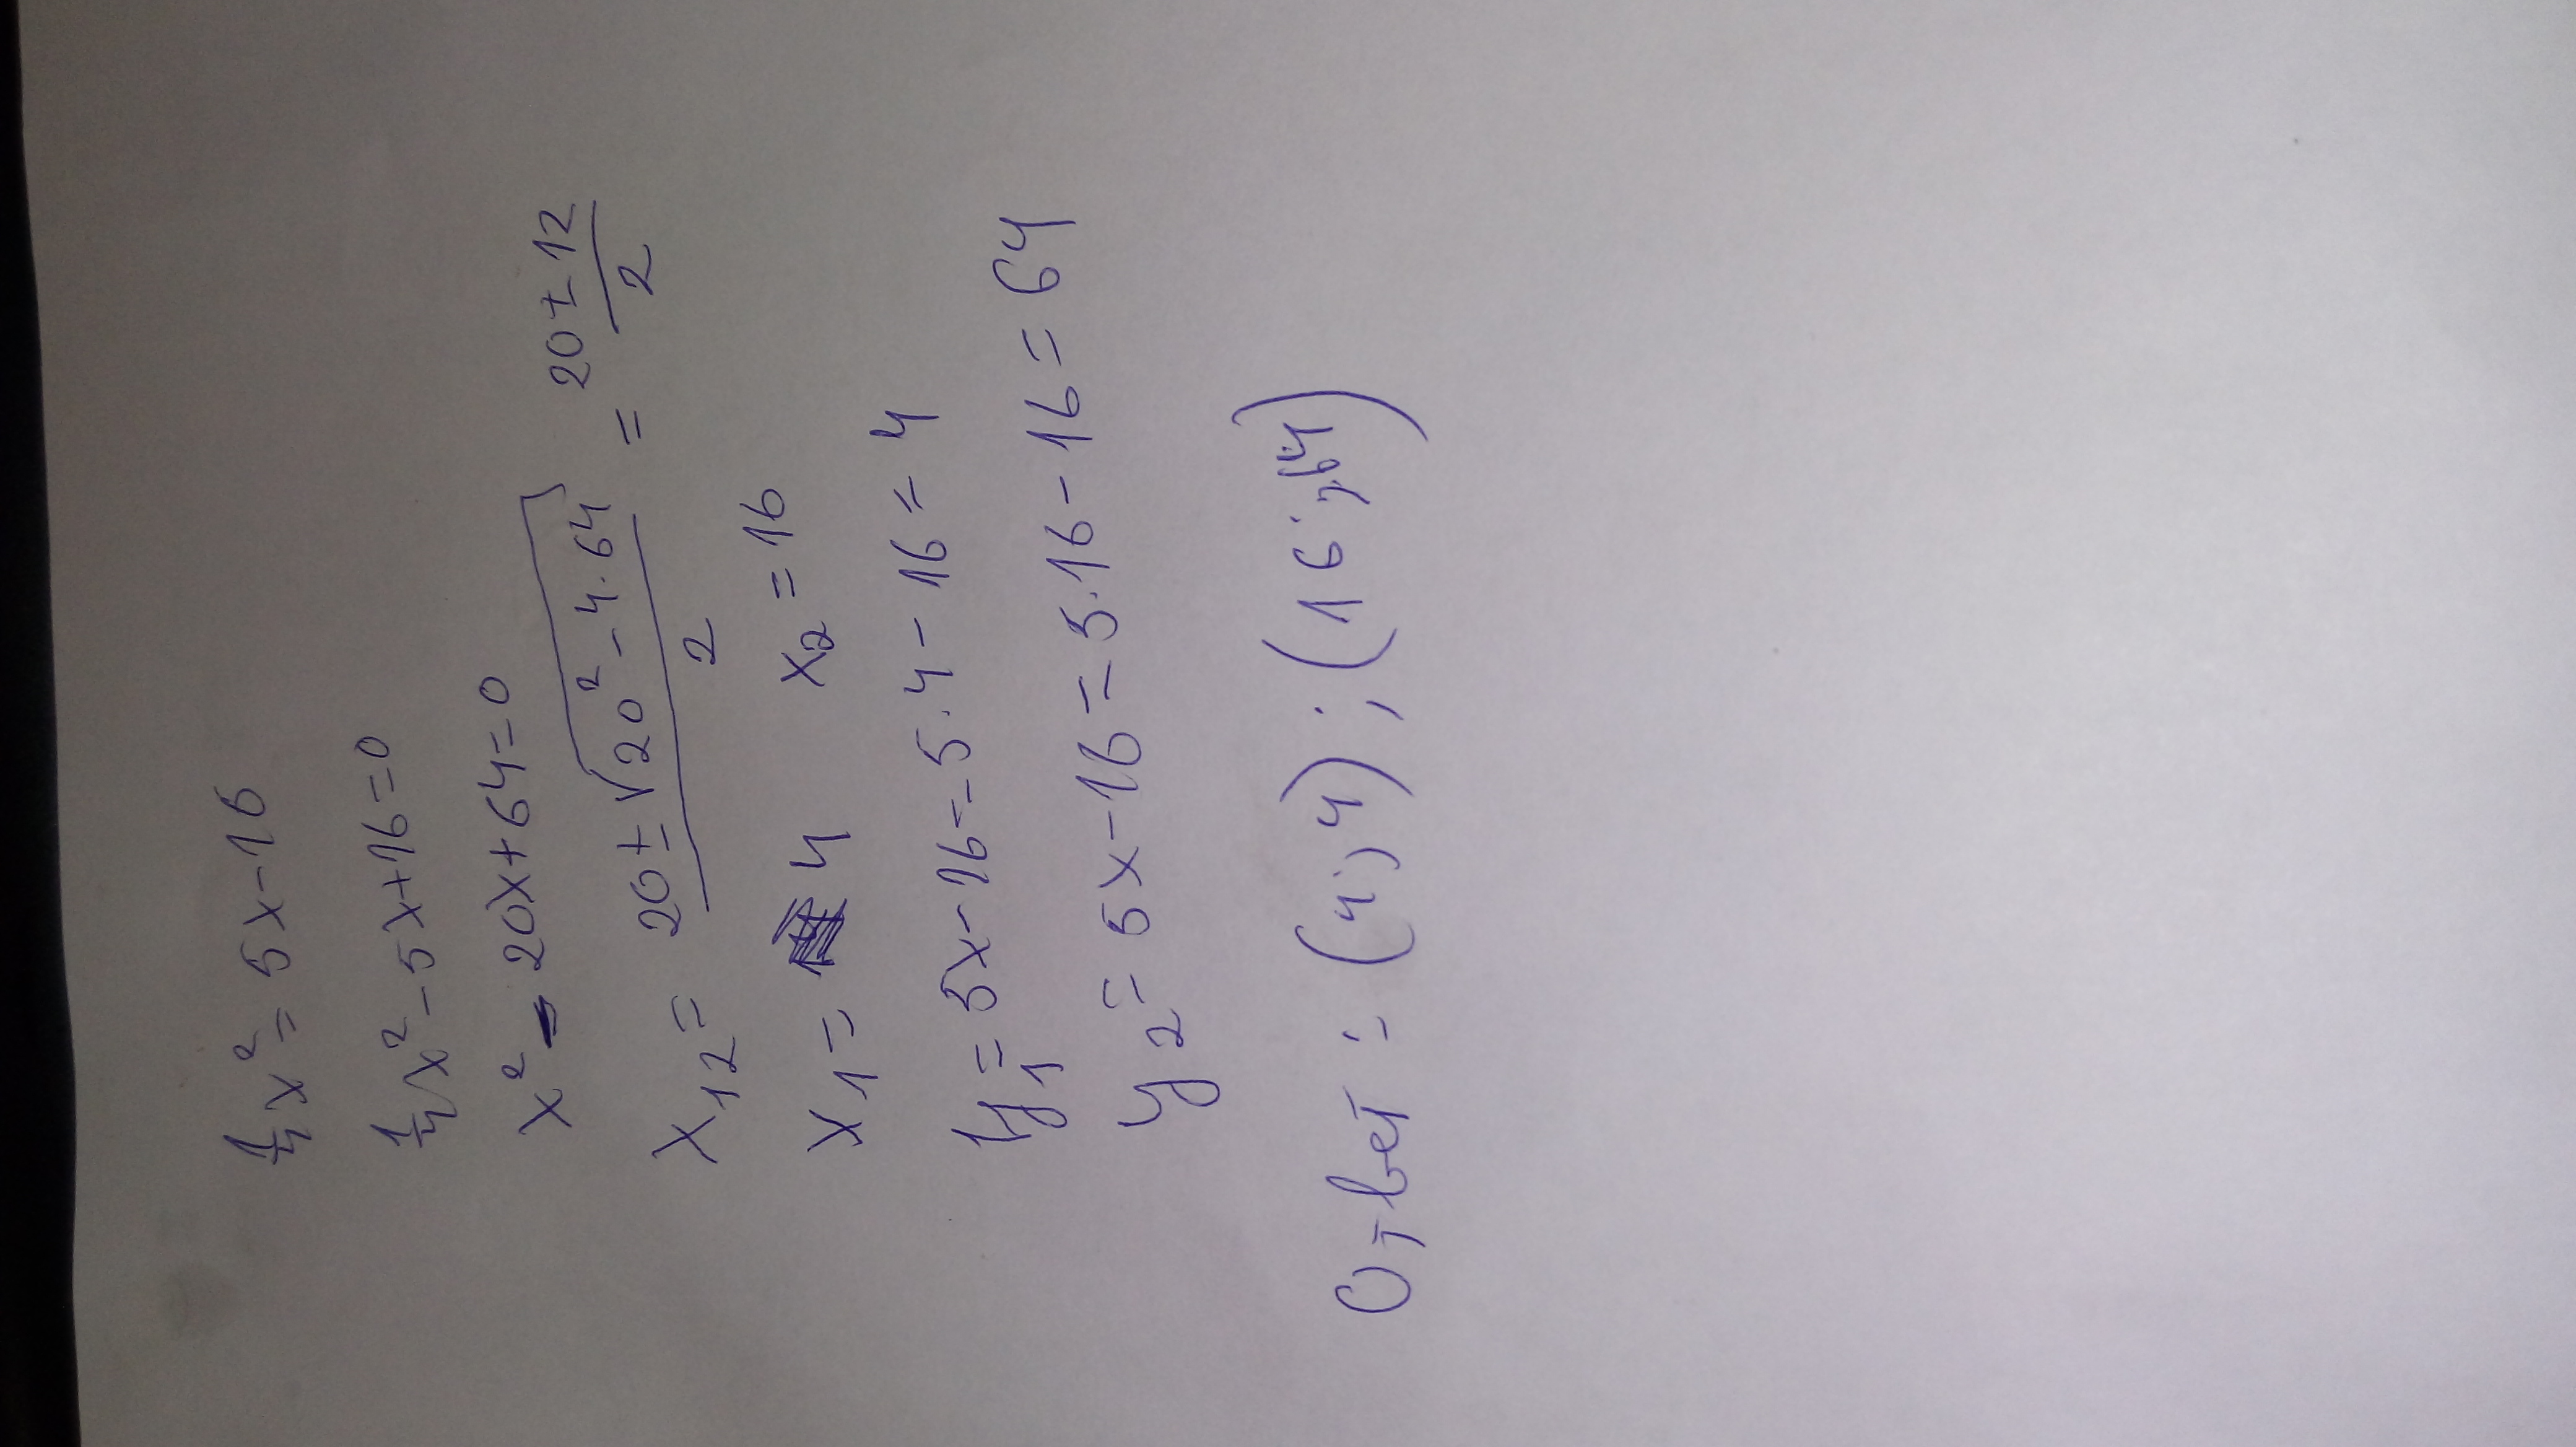 1/4 x² = 5x - 16
1/4 x² - 5x + 16 = 0
x² - 20x + 64 = 0
x₁₂ = (20 ± √(20² - 4·64))/2 = (20 ± 12)/2
x₁ = 4 x₂ = 16
y₁ = 5x - 16 = 5·4 - 16 = 4
y₂ = 5x - 16 = 5·16 - 16 = 64
Ответ: (4;4);(16;64)